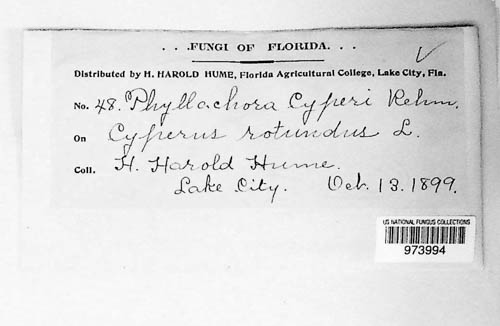 . . .FUNGI OF FLORIDA. . .
Distributed by H. HAROLD HUME, Florida Agricultural College, Lake City, Fla.
No. 48. Phyllachora Cyperi Rehm.
On Cyperus rotundus L.
Coll. H. Harold Hume.
Lake City. Oct. 13. 1899.
US NATIONAL FUNGUS COLLECTIONS
973994